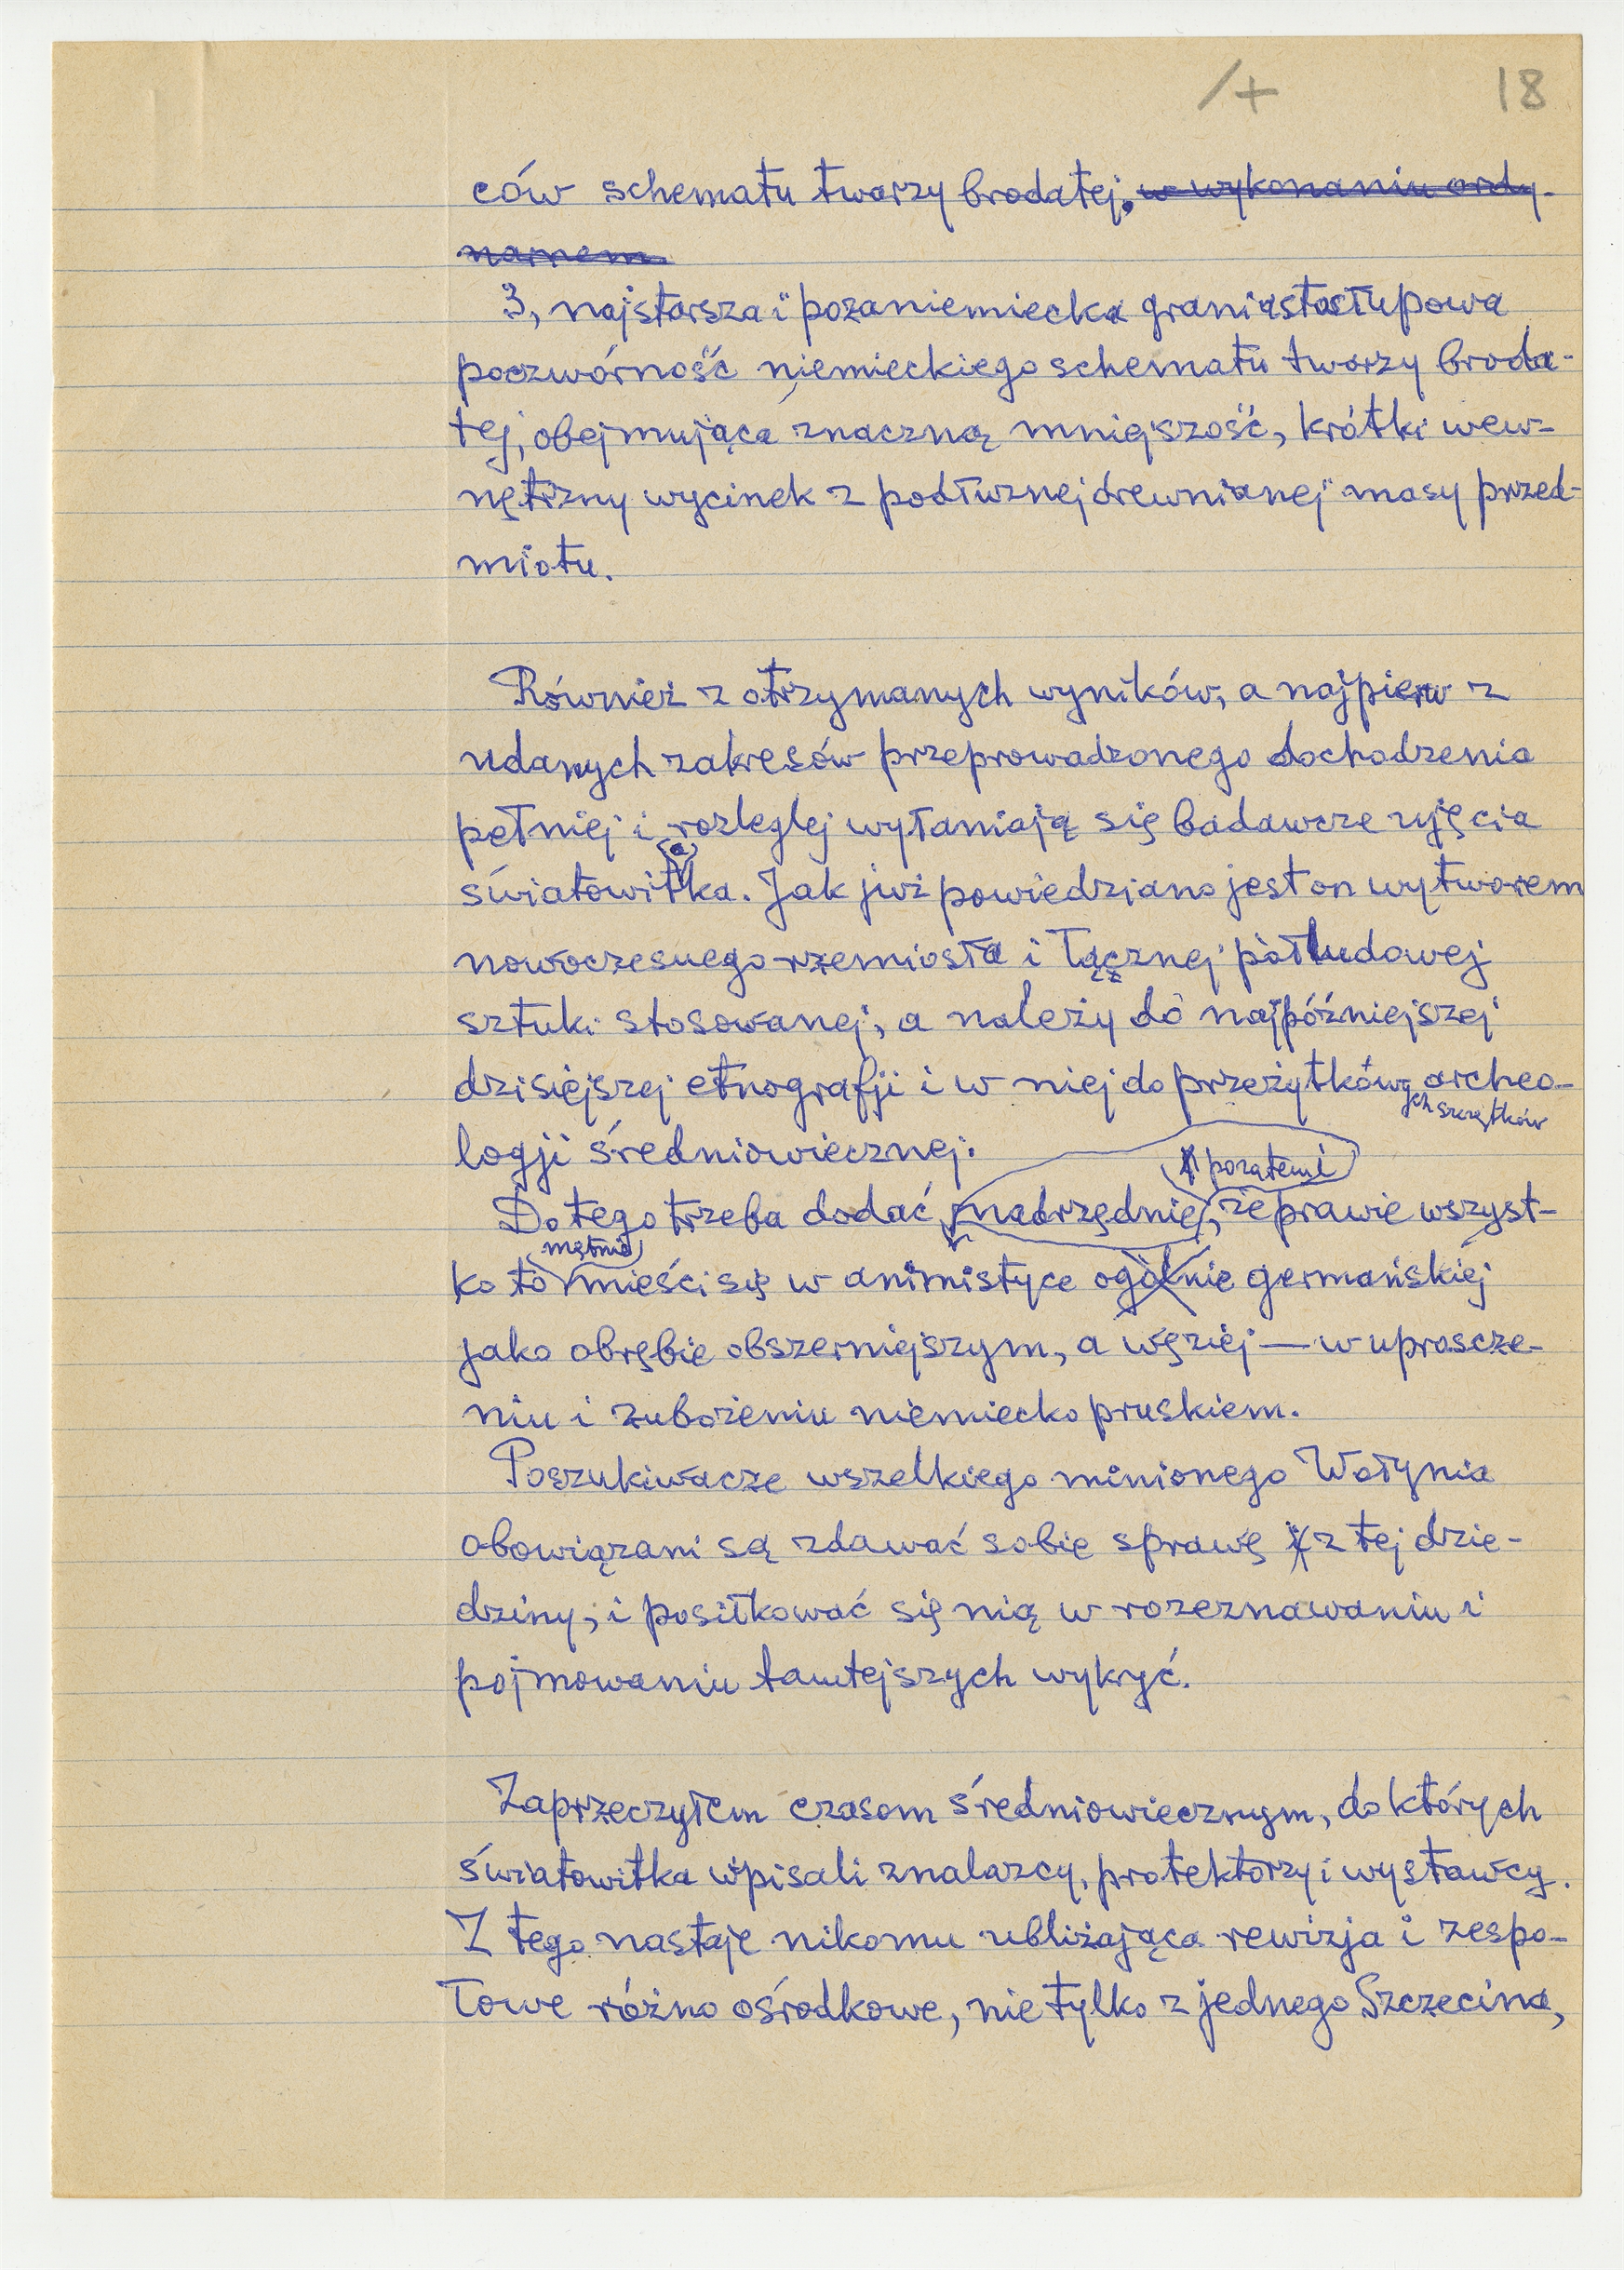 /+ 18
ców schematu twarzy brodatej. w wykonaniu ordy-
narnem
3, najstarsza i pozaniemiecka graniastosłupowa
poczwórność niemieckiego schematu twarzy broda-
tej, obejmująca znaczną mniejszość, krótki wew-
nętrzny wycinek z podłużnej drewnianej masy przed-
miotu.
Również z otrzymanych wyników, a najpierw z
udanych zakresów przeprowadzonego dochodzenia
pełniej i rozleglej wyłaniają się badawcze ujęcia
światowitka. Jak już powiedziano jest on wytworem
nowoczesnego rzemiosła i łącznej półludowej
sztuki stosowanej, a należy do najpóźniejszej
dzisiejszej etnografji i w niej do przeżytków archeo-
ych szczątków
logji średniowiecznej.
pozatemi
Do tego trzeba dodać nadrzędnie, że prawie wszyst-
mętnie
ko to mieści się w animistyce ogólnie germańskiej
jako obrębie obszerniejszym, a węziej — w uproszcze-
niu i zubożeniu niemiecko pruskiem.
Poszukiwacze wszelkiego minionego Wołynia
obowiązani są zdawać sobie sprawę i z tej dzie-
dziny, i posiłkować się nią w rozeznawaniu i
pojmowaniu tamtejszych wykryć.
Zaprzeczyłem czasom średniowiecznym, do których
światowitka wpisali znalazcy, protektorzy i wystawcy.
Z tego nastaje nikomu ubliżająca rewizja i zespo-
łowe różno ośrodkowe, nie tylko z jednego Szczecina,